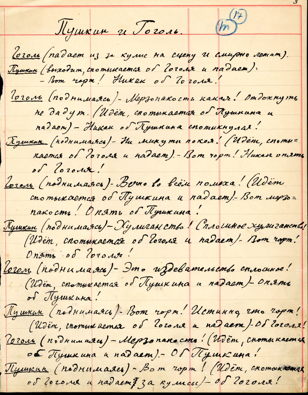 3
17
m
Пушкин и Гоголь.
Гоголь (падает из за кулис на сцену и смирно лежит).
Пушкин (выходит, спотыкается об Гоголя и падает).
— Вот чорт! Никак об Гоголя!
Гоголь (поднимаясь) — Мерзопакость какая! Отдохнуть
не дадут. (Идёт, спотыкается об Пушкина и
падает) — Никак об Пушкина спотыкнулся!
Пушкин (поднимаясь) — Ни минуты покоя! (Идёт, споты-
кается об Гоголя и падает) — Вот чорт! Никак опять
об Гоголя!
Гоголь (поднимаясь) — Вечно во всём помеха! (Идёт
спотыкается об Пушкина и падает) — Вот мерзо-
пакость! Опять об Пушкина!
Пушкин (поднимаясь) — Хулиганство! Сплошное хулиганство!
(Идёт, спотыкается об Гоголя и падает) — Вот чорт!
Опять об Гоголя!
Гоголь (поднимаясь) — Это издевательство сплошное!
(Идёт, спотыкается об Пушкина и падает) — опять
об Пушкина!
Пушкин (поднимаясь) — Вот чорт! Истинно что чорт!
(Идёт, спотыкается об Гоголя и падает) — Об Гоголя!
Гоголь (поднимаясь) — Мерзопакость! (Идёт, спотыкается
об Пушкина и падает) — Об Пушкина!
Пушкин (поднимаясь) — Вот чорт! (Идёт, спотыкается
об Гоголя и падает за кулисы) — Об Гоголя!